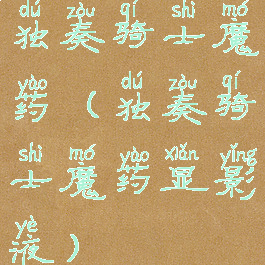 dú zòu qí shì mó
独奏骑士魔
yào dú zòu qí
药（独奏骑
shì mó yào xiǎn yǐng
士魔药显影
yè
液）